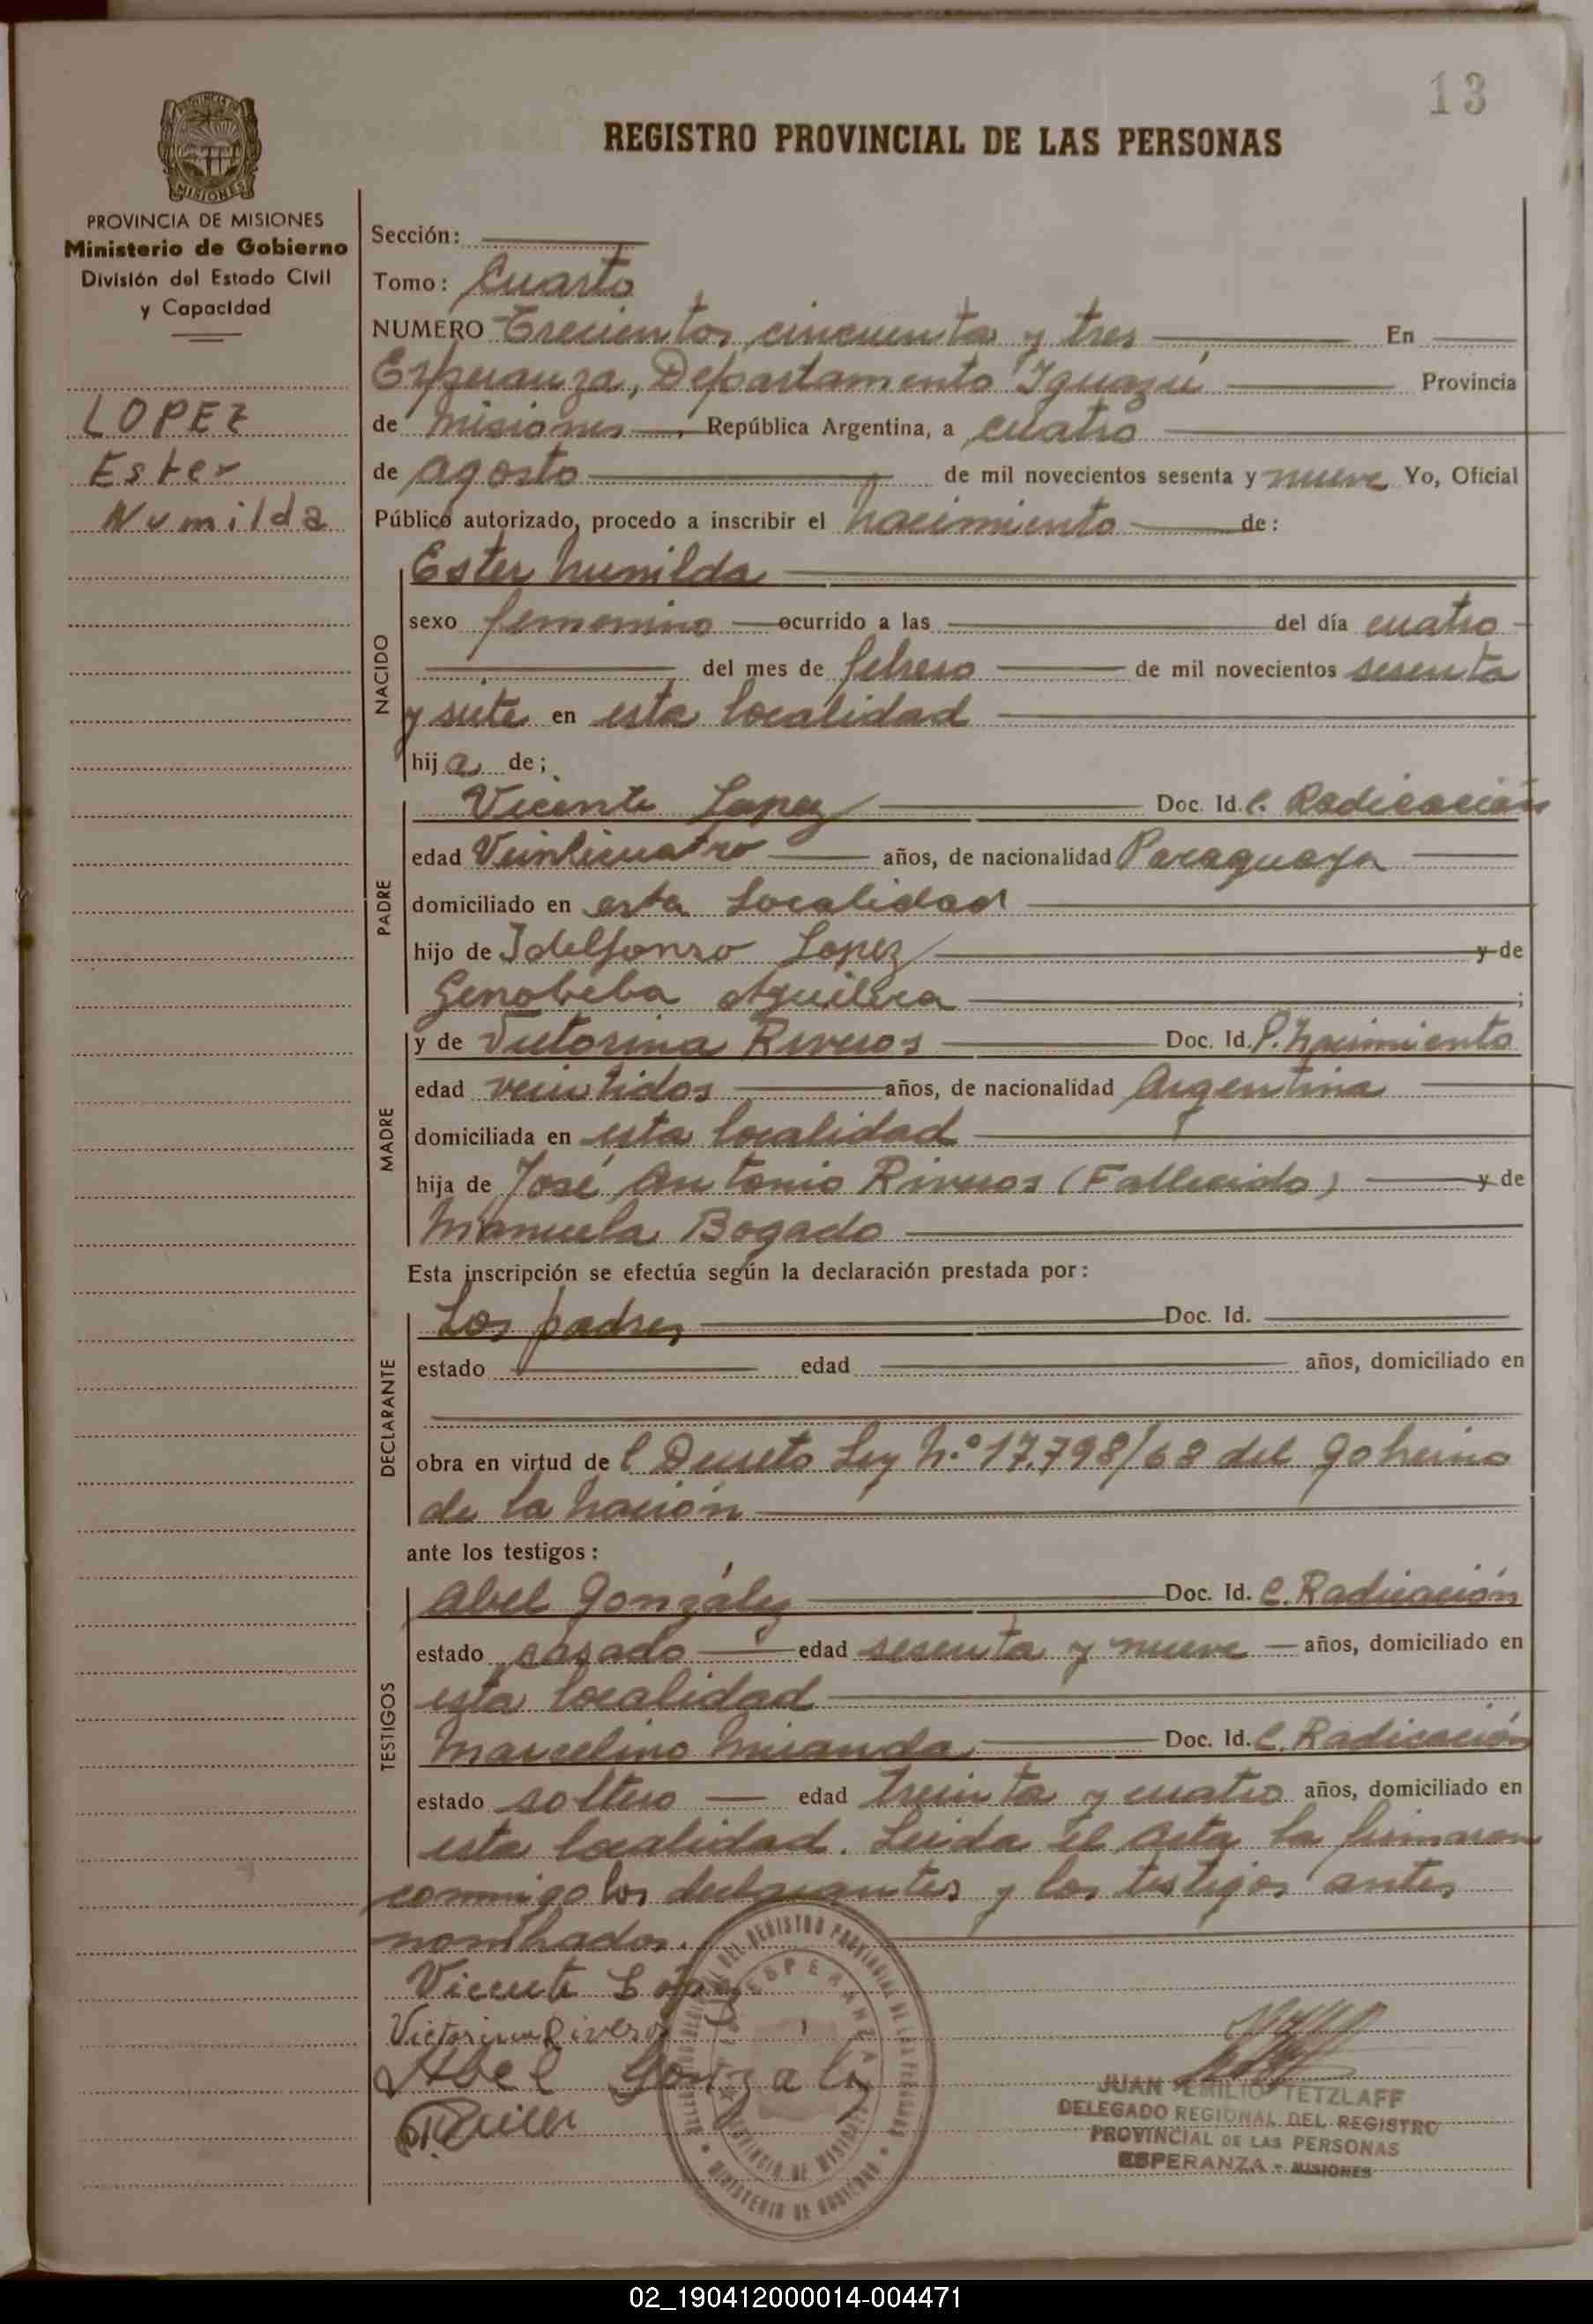 13
REGISTRO PROVINCIAL DE LAS PERSONAS
MISIONES
PROVINCIA DE MISIONES
Ministerio de Gobierno
División del Estado Civil
y Capacidad
LOPEZ
Ester
Numilda
Sección:
Tomo: Cuarto
NUMERO Trecientos cincuenta y tres En
Esperanza, Departamento Iguazú Provincia
de Misiones, República Argentina, a cuatro
de agosto de mil novecientos sesenta y nueve Yo, Oficial
Público autorizado, procedo a inscribir el nacimiento de:
NACIDO
Ester Numilda
sexo femenino ocurrido a las del día cuatro
del mes de febrero de mil novecientos sesenta
y siete en esta localidad
hija de;
PADRE
Vicente Lopez Doc. Id. C. Radicación
edad Veinticuatro años, de nacionalidad Paraguaya
domiciliado en esta Localidad
hijo de Idelfonso Lopez y de
Genobeba Aguilera ;
MADRE
y de Victorina Riveros Doc. Id. P. Nacimiento
edad veintidos años, de nacionalidad Argentina
domiciliada en esta localidad
hija de José Antonio Riveros (Fallecido) y de
Manuela Bogado
Esta inscripción se efectúa según la declaración prestada por:
DECLARANTE
Los padres Doc. Id.
estado edad años, domiciliado en
obra en virtud del Decreto Ley N.º 17.798/68 del gobierno
de la nación
ante los testigos:
TESTIGOS
Abel González Doc. Id. C. Radicación
estado casado edad sesenta y nueve años, domiciliado en
esta localidad
Marcelino Miranda Doc. Id. C. Radicación
estado soltero edad treinta y cuatro años, domiciliado en
esta localidad. Leida el Acta la firmaron
conmigo los y los testigos antes
nombrados.
Vicente López
Victorina Riveros
Abel Gonzalez
ESPERANZA
JUAN EMILIO TETZLAFF
DELEGADO REGIONAL DEL REGISTRO
PROVINCIAL DE LAS PERSONAS
ESPERANZA - MISIONES
02_190412000014-004471